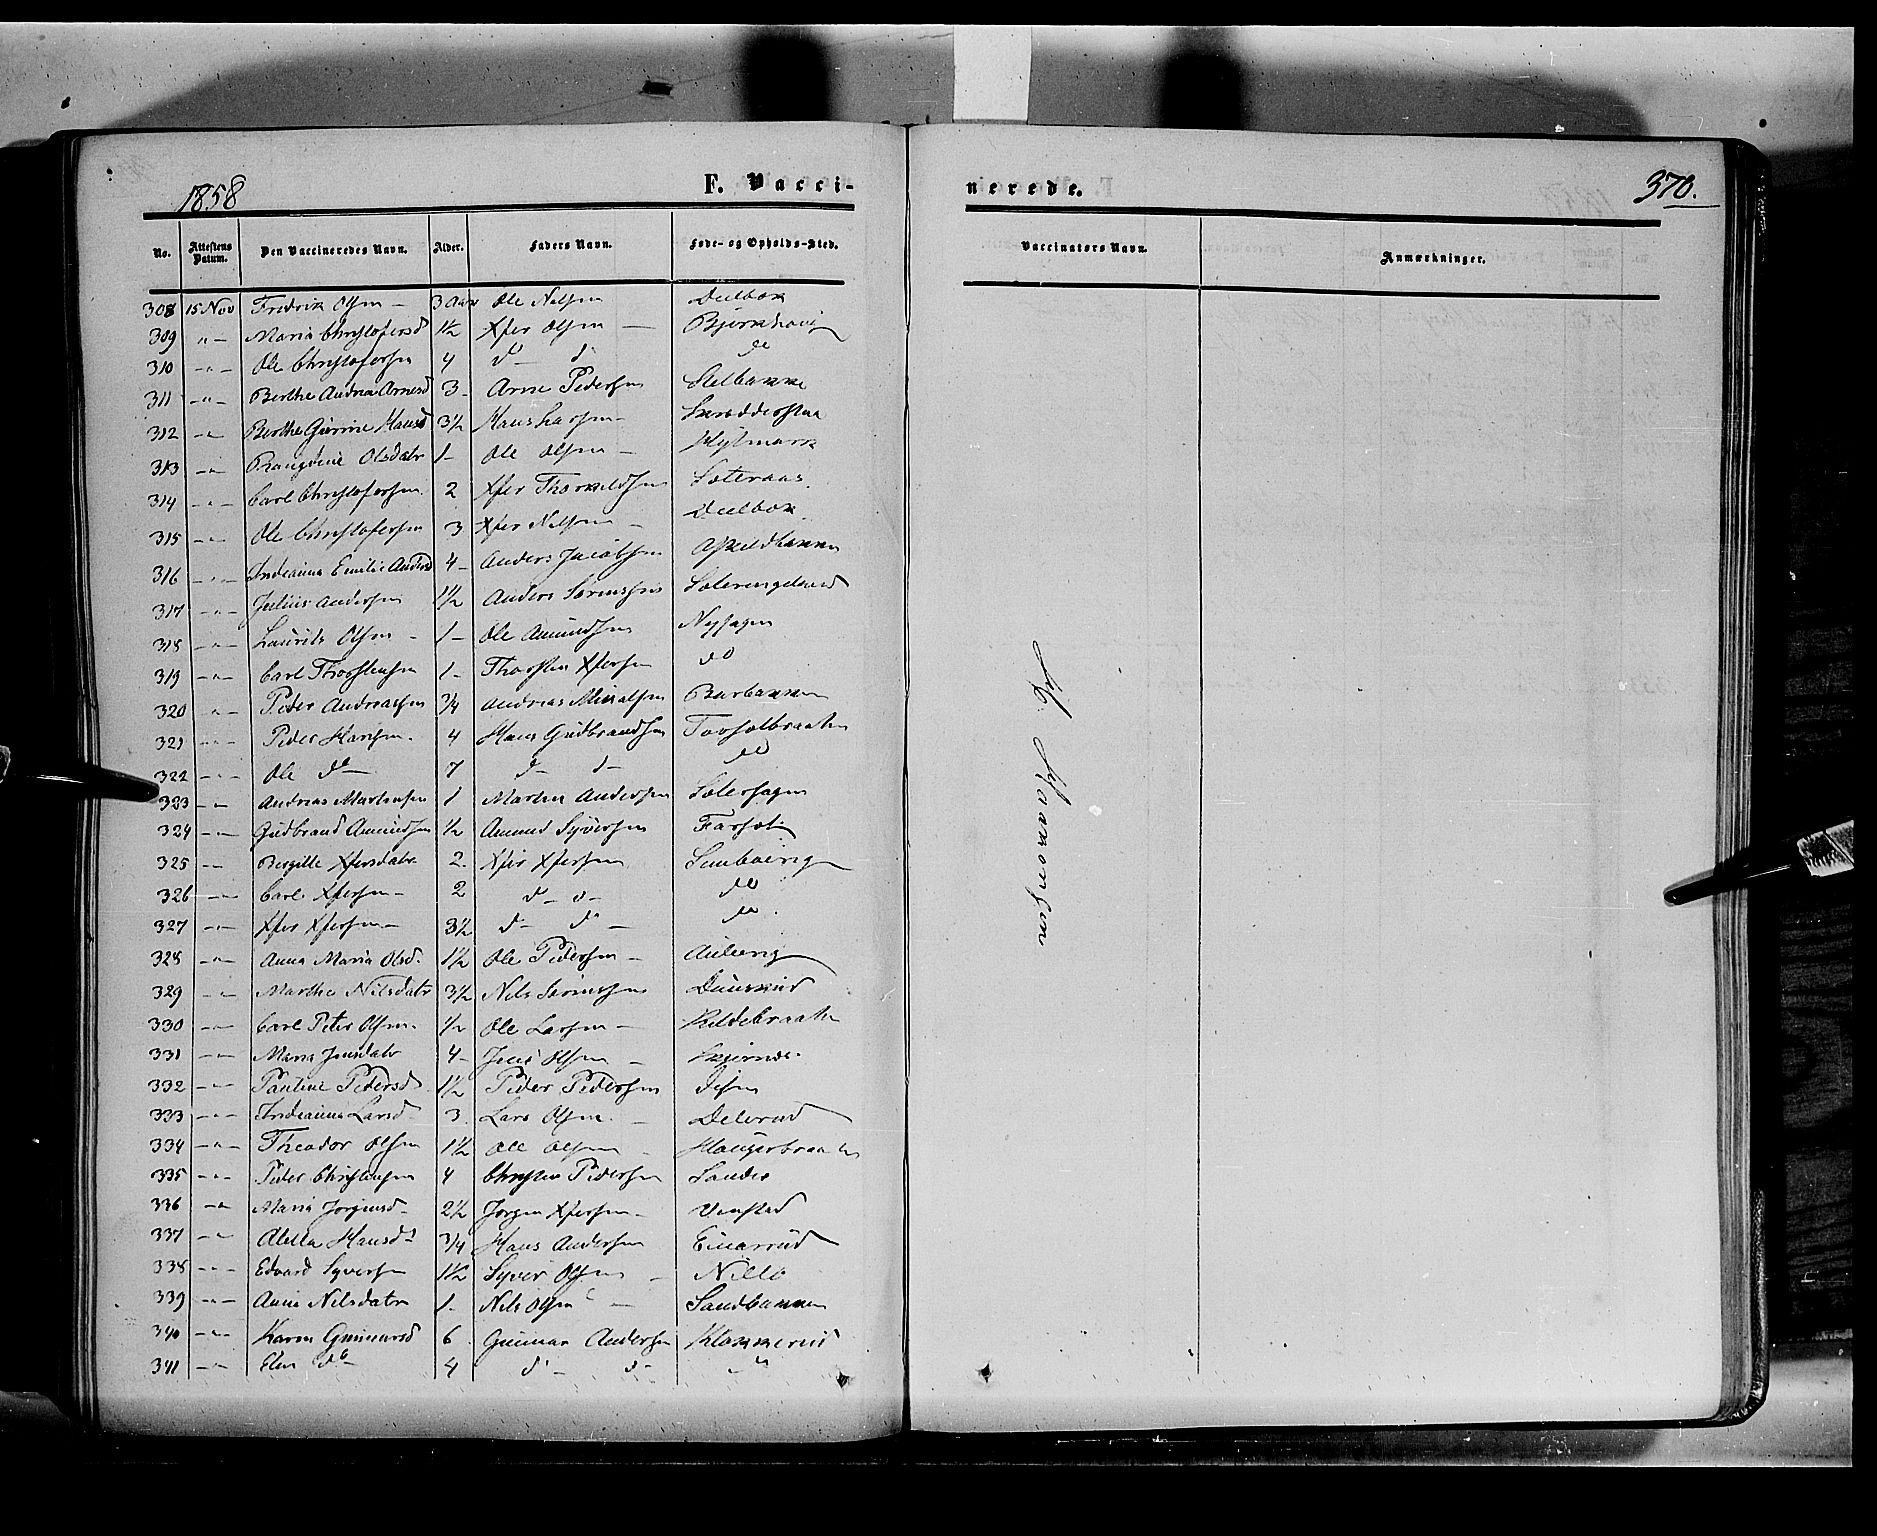 1858 F. Vacci- nerede. 370.
No. Attestens Datum. Den Vaccineredes Navn. Alder. Faders Navn. Føde- og Opholds-Sted. Vaccinators Navn. Anmærkninger.
308 15 Nov Fredrik Olsen - 3 Aar Ole Nilsen Deelbæk
309 " - Maria Christofersd 1½ Xfer Olsen - Bjørnhoug
310 - " - Ole Christofersen 4 d - d do
311 - " - Berthe Andrea Arnesd 3 - Arne Pedersen Stelbakke
312 - " Berthe Gurine Hansd 3½ Hans Larsen - Skreddersstua
313 - " - Rangdine Olsdatr 1 - Ole Olsen - Nylmark
314 - " - Carl Christofersen 2 Xfer Thorkeldsen Sæteraas
315 - " - Ole Christofersen 3 Xfer Nilsen - Deelbæk
316 - " - Indianna Emilie Andersd 4 - Anders Jacobsen
317 - " - Julius Andersen 1½ Anders Sørensen Sæterengelund
318 - " - Laurits Olsen - 1 - Ole Amundsen Nyhagen
319 - " - Carl Thorstensen 1 - Thorsten Xfersen do
320 " - Peder Andreassen ¾ Andreas Mikalsen Burbakken
321 - " - Peder Hansen - 4 Hans Gudbrandsen Torsætbraaten
322 - " - Ole do - 7 d - d - do
323 - " Andreas Martinsen 1 Martin Andersen Sæterhagen
324 - " - Gudbrand Amundsen ½ Amund Syversen
325 - " Bergitte Xfersdatr 2 Xfer Xfersen
326 - " - Carl Xfersen - 2 d - d - do
327 - " - Xfer Xfersen - 3½ d - do - do
328 - " - Anna Maria Olsd. 1½ Ole Pedersen -
329 - " - Marthe Nilsdatr 3½ Nils Sørensen
330 - " - Carl Peter Olsen - ½ Ole Larsen - Kildebraaten
331 - " - Maria Jensdatr 4 - Jens Olsen -
332 - " - Pauline Pedersd 1½ Peder Pedersen
333 - " - Indianna Larsd - 3 Lars Olsen - Delerud
334 - " - Theodor Olsen 1½ Ole Olsen - Haugerbraaten
335 - " - Peder Christensen 4 Christen Pedersen Sander
336 - " Maria Jørgensd - 2½ Jørgen Xfersen - Vemstad
337 - " Aletta Hansd ¾ Hans Andersen Einarrud
338 - " - Edvard Syversen 1½ Syver Olsen - Nillo
339 - " - Anne Nilsdatr 1 - Nils Olsen - Sandbakken
340 - " - Karen Gunnarsd 6 Gunnar Andersen Klokkerud
341 - " - Elen do - 4 d - d - - " -